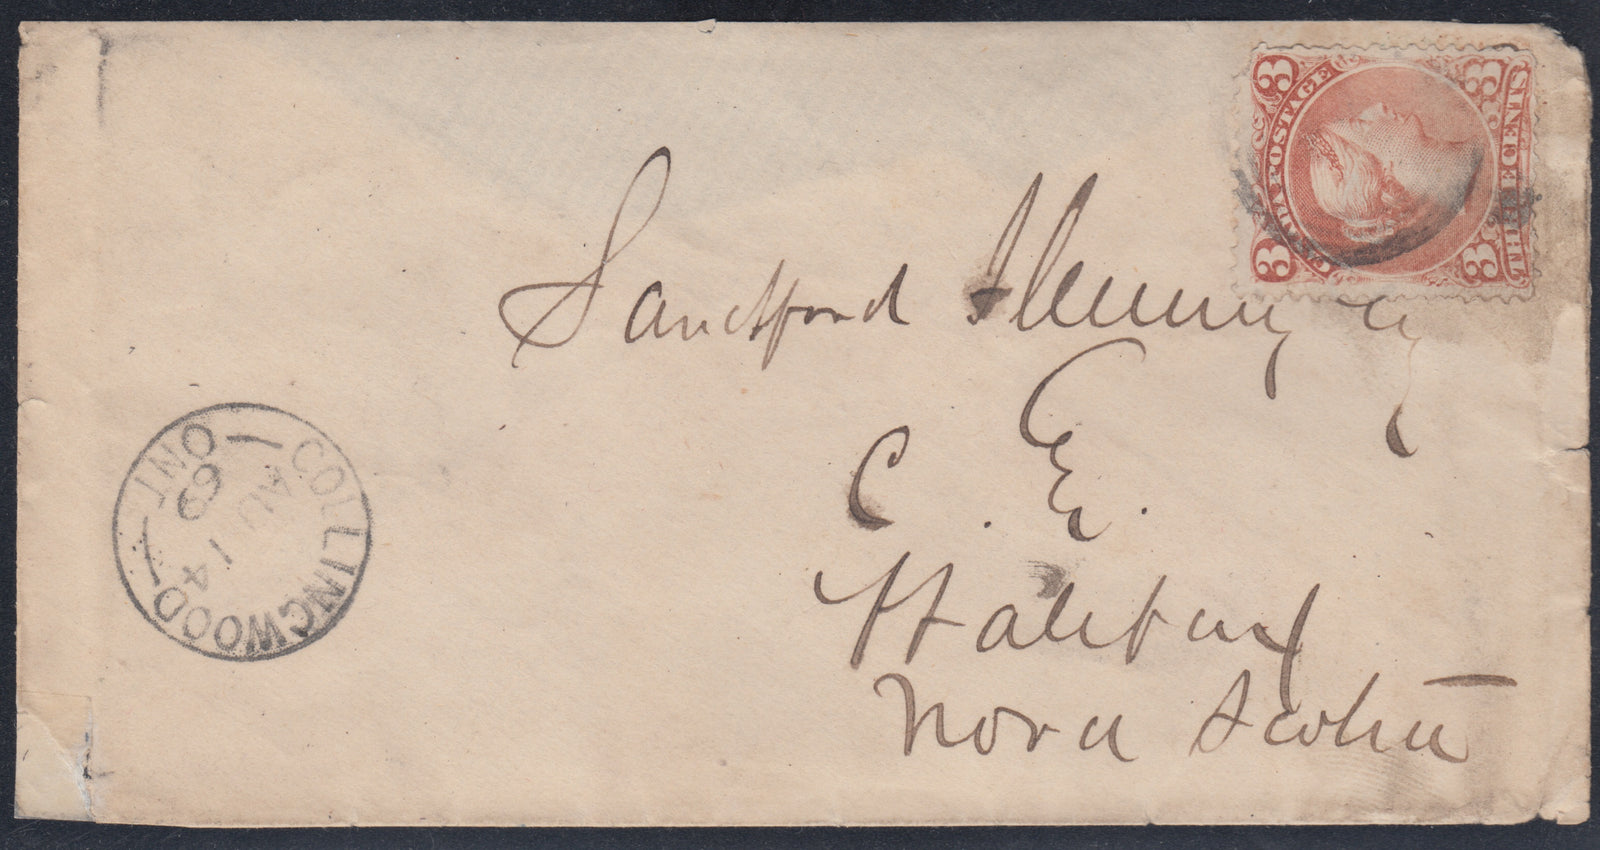 CANADA POSTAGE
THREE CENTS
3 3
3 3
Sandford Fleming Esq
C. E.
Halifax
Nova Scotia
COLLINGWOOD
ONT
AU 14
69